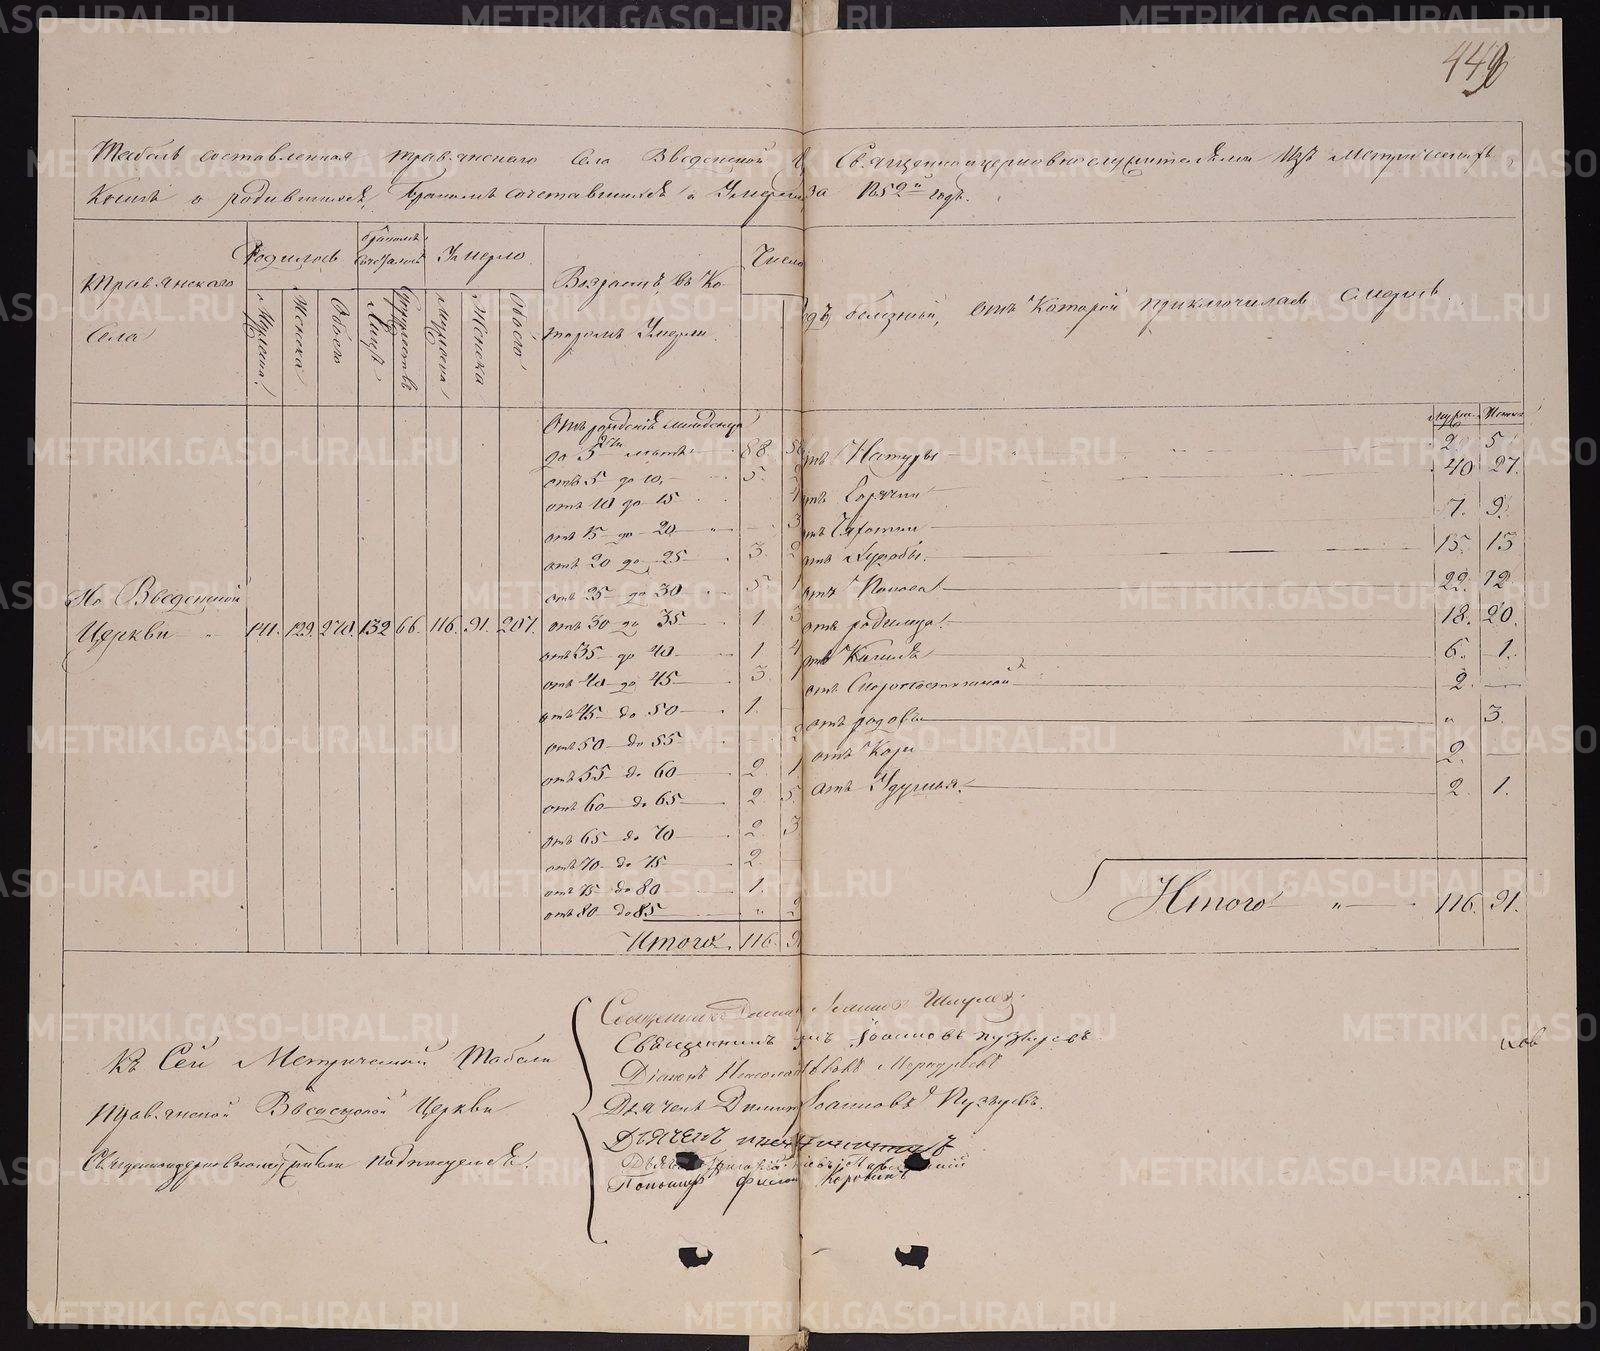 449
Табель составленная Травянскаго Села Введенской Ц Священноцерковнослужителями Изъ Метрическихъ
Книгъ о родившихся, бракомъ сочетавшихся и Умерш за 1852 годъ.
Травянскаго
Села
Родилось
бракомъ
сочеталось
Умерло
Мужеска
Женска
Обоего
Лицъ
Супружествъ
Мужеска
Женска
Обоего
Возрастъ въ Ко-
торомъ Умерли.
Число
болезний, отъ Которой приключилась Смерть.
мужес. Женск.
По Введенской
Церкви 141. 129. 270. 132 66. 116. 91. 207.
Отъ рождения младенца
до 5 летъ 88
отъ 5 до 10, 5.
отъ 10 до 15
отъ 15 до 20 3
отъ 20 до 25 3. 2
отъ 25 до 30 5 1
отъ 30 до 35 1 3
отъ 35 до 40 1 4
отъ 40 до 45 3.
отъ 45 до 50 1.
отъ 50 до 55
отъ 55 до 60 2 1
отъ 60 до 65 2 5
отъ 65 до 70 2 3
отъ 70 до 75 2.
отъ 75 до 80 1.
отъ 80 до 85 " 2
Итого 116.
отъ Натуры 2 5
отъ Горячки 40 27.
отъ Чахотки 7. 9.
отъ Худобы. 15. 13
отъ Поноса 22. 12.
отъ родимца. 18. 20.
отъ Кашля 6. 1.
отъ Скоропостижной 2.
отъ родовъ " 3.
отъ Кори 2.
отъ Удушья. 2. 1.
Итого " 116. 91.
Къ Сей Метрической Табели
Травянской Введенской Церкви
Священноцерковнослужители подписуемся.
Священникъ Иоаннов
Священникъ Иоанновъ Пузыревъ
Діаконъ Николай Меркурьевъ
Дьячекъ Димит Иоанновъ Пузыревъ.
Дьячекъ
Дьячекъ Григорій
Пономарь Филип Коровинъ
METRIKI.GASO-URAL.RU